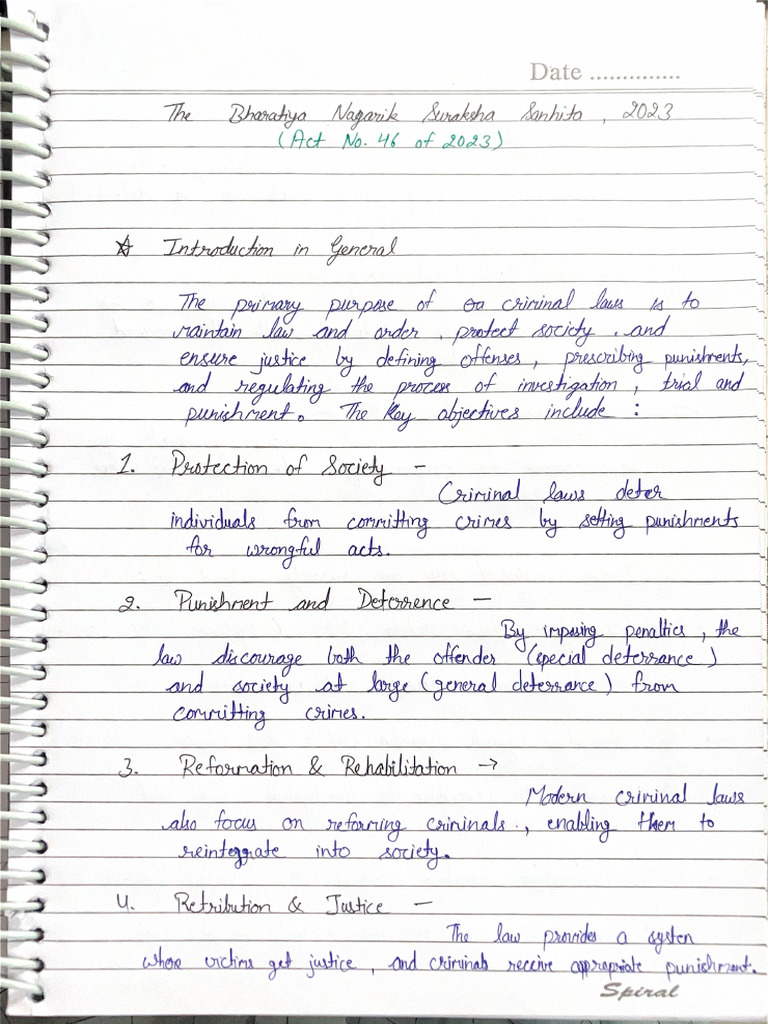 Date ..............
The Bharatiya Nagarik Suraksha Sanhita , 2023
(Act No. 46 of 2023)
☆ Introduction in General
The primary purpose of criminal laws is to
maintain law and order , protect society , and
ensure justice by defining offenses , prescribing punishments,
and regulating the process of investigation , trial and
punishment. The key objectives include :
1. Protection of Society -
Criminal laws deter
individuals from committing crimes by setting punishments
for wrongful acts.
2. Punishment and Deterrence -
By imposing penalties , the
law discourage both the offender (special deterrance)
and society at large (general deterrance) from
committing crimes.
3. Reformation & Rehabilitation →
Modern criminal laws
also focus on reforming criminals , enabling them to
reinteggrate into society.
4. Retribution & Justice -
The law provides a system
victims get justice , and criminals receive appropriate punishment.
Spiral